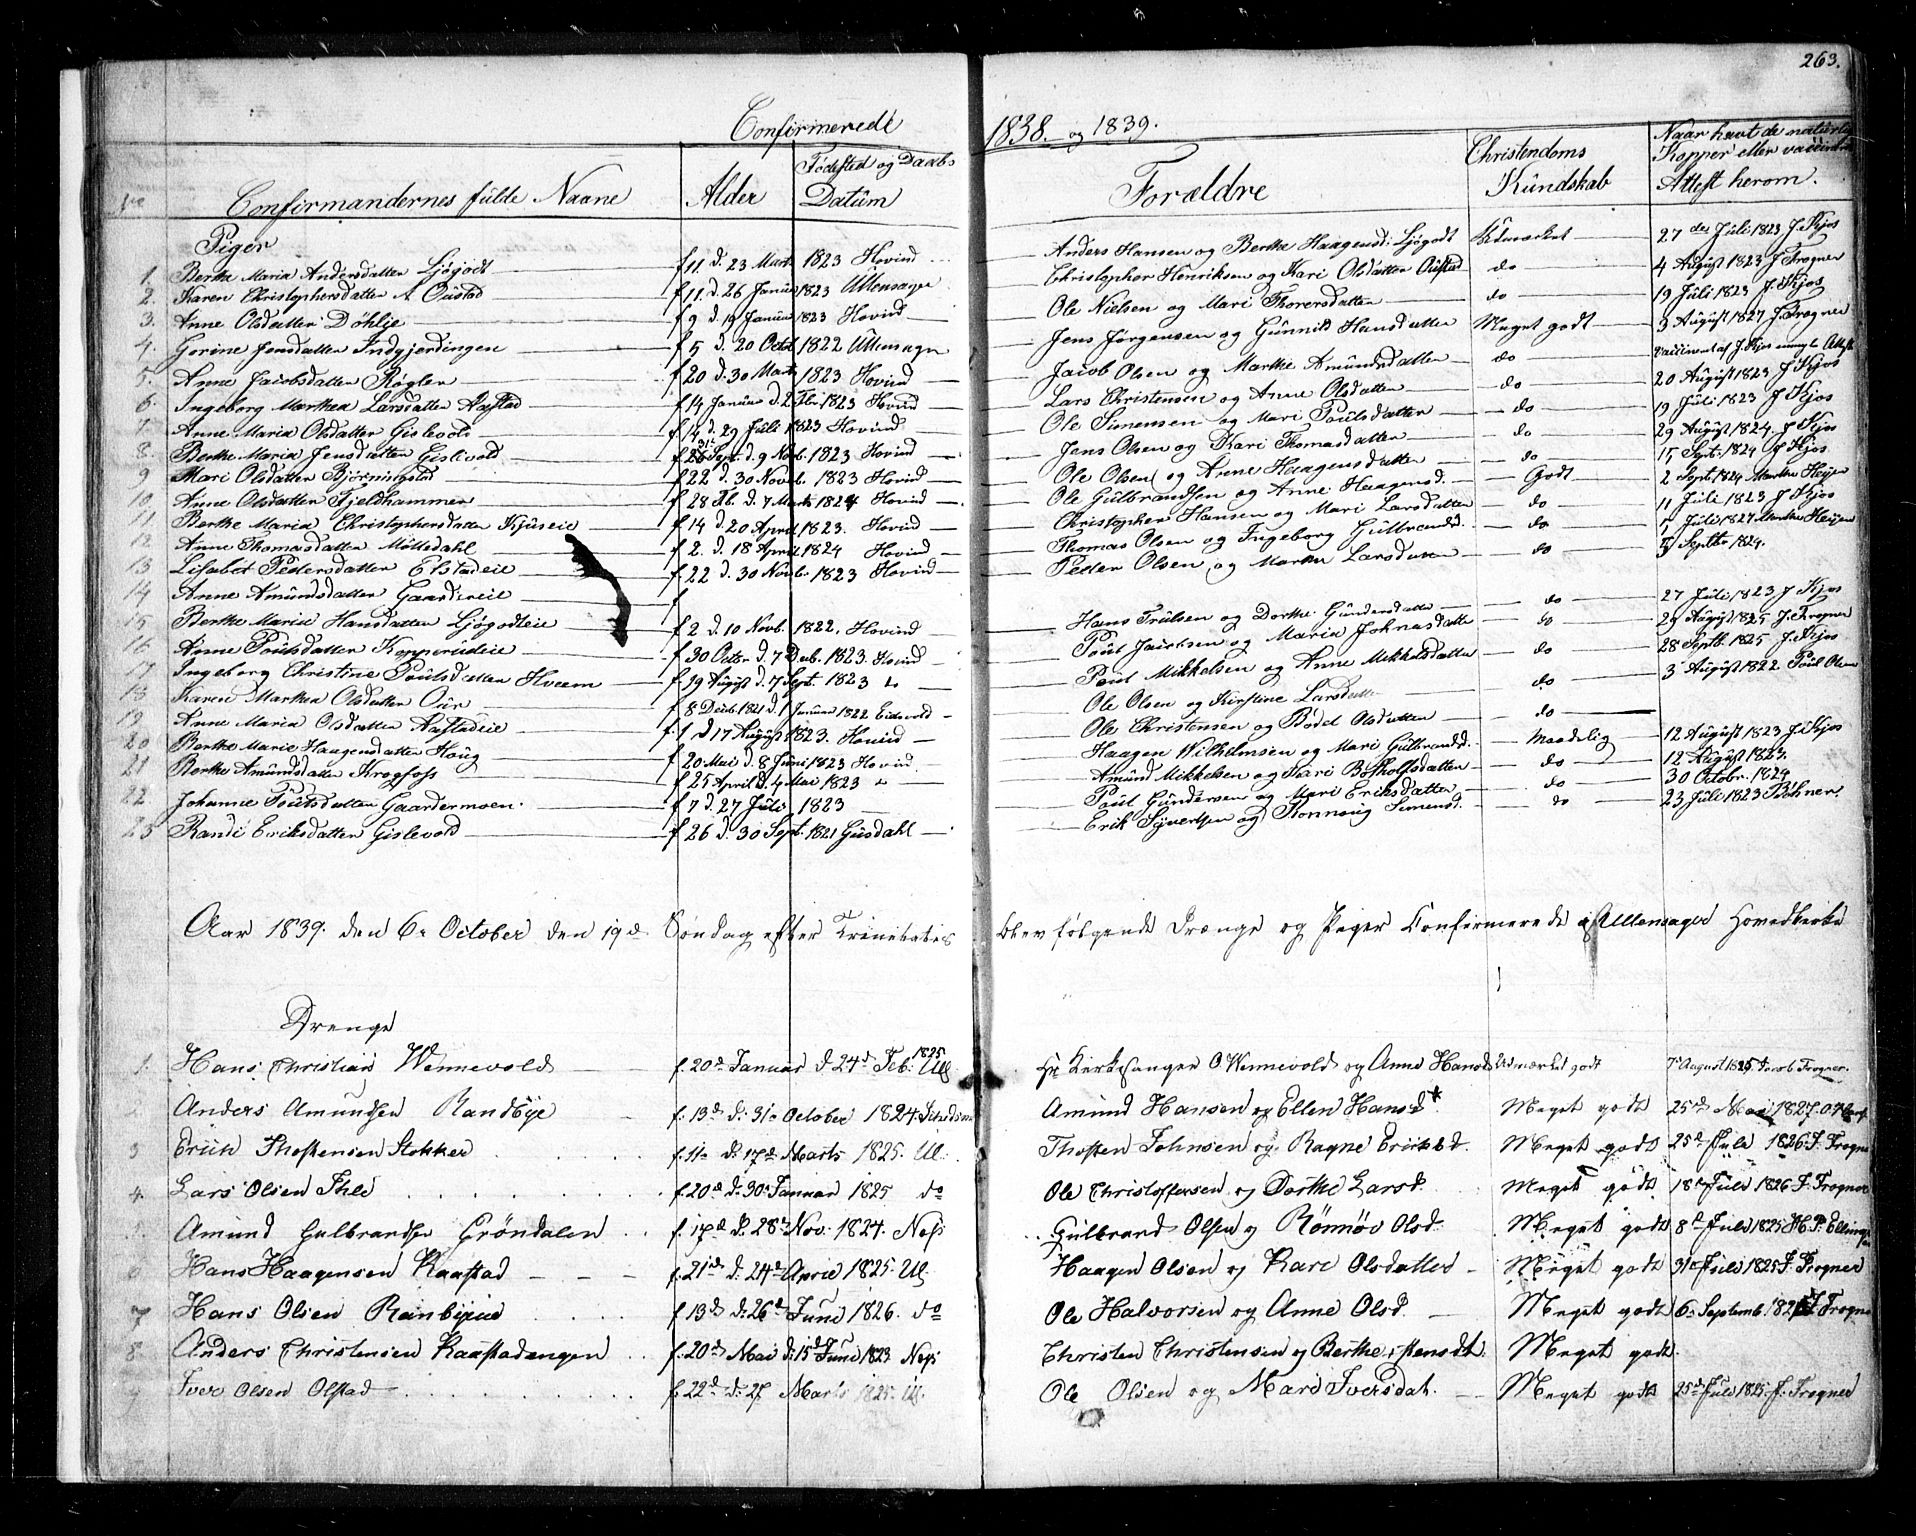 263.
Confirmerede 1838. og 1839.
No Confirmandernes fulde Navne Alder Fødested og Daabs Datum Forældre Christendoms Kundskab Naar havt de naturlige Kopper eller vaccineret Attest herom.
Piger
1. Berthe Maria Andersdatter Ljøgodt f 11 d. 23 Marts 1823 Hovind Anders Hansen og Berthe Haagensd: Ljøgodt Udmærket 27de Juli 1823 J. Kjos
2. Karen Christophersdatter Oustad f 11. d. 26 Januar 1823 Ullensager Christopher Henriksen og Kari Olsdatter Oustad do 4 August 1823 J. Trogner
3. Anne Olsdatter Døhlie f 9 d. 19 Januar 1823 Hovind Ole Nielsen og Mari Thorersdatter do 19 Juli 1823 J. Kjos
4. Gorine Jensdatter Indgjerdingen f 5 d. 20 Octob 1822 Ullensager Jens Jørgensen og Gunnild Hansdatter Meget godt 3 August 1827 J. Trogner
5. Anne Jacobsdatter Røgler f 20 d. 30 Marts 1823 Hovind Jacob Olsen og Marthe Amundsdatter do vaccineret af J. Kjos mangler Attest
6. Ingeborg Marthea Larsdatter Aastad f 14 Januar d. 2 Feb. 1823 Hovind Lars Christensen og Anne Olsdatter do 20 August 1823 J Kjos
7. Anne Maria Olsdatter Gislevold f 14 d. 29 Juli 1823 Hovind Ole Simensen og Mari Poulsdatter do 19 Juli 1823 J Kjos
8. Berthe Maria Jensdatter Gislevold f 26 Sept. d. 9 Novb. 1823 Hovind Jens Olsen og Kari Thomasdatter do 29 August 1824. J Kjos
9 Mari Olsdatter Bjørningstad f 22 d. 30 Novb. 1823 Hovind Ole Olsen og Anne Haagensdatter do 15 Sept. 1824 J Kjos
10. Anne Olsdatter Fjeldhammer f 28 Feb. d. 7 Marts 1824 Hovind Ole Gulbrandsen og Anne Haagensd. Godt 2 Sept 1824 Marthe Heijen
11. Berthe Maria Christophersdatter Kjuseie f 14 d. 20 April 1823. Hovind Christopher Hansen og Mari Larsdatter do 11 Juli 1823 J. Kjos
12. Anne Thomasdatter Møltedahl f 2. d. 18 April 1824 Hovind Thomas Olsen og Ingeborg Gulbrandsd. do Juli 1827 Marthe Heijen
13 Lisabet Pedersdatter Elstadeie f. 22 d. 30 Novbr. 1823 Hovind Peder Olsen og Marthe Larsdatter do Septbr 1824.
14 Anne Amundsdatter Gaardereie f
15 Berthe Maria Hansdatter Ljøgodteie f 2 d. 10 Novb. 1822. Hovind Hans Trulsen og Dorthe Gundersdatter do 27 Juli 1823 J Kjos
16 Anne Poulsdatter Kopperudeie f 30 Octbr d. 7 Decb. 1823. Hovind Poul Jacobsen og Maria Johnasdatter do 29 August 1825 J. Trogner
17 Ingeborg Christine Poulsdatter Hveem f 19 August d. 7 Sept. 1823 Poul Mikkelsen og Anne Mikkelsdatter do 28 Septb. 1825 J. Kjos
18 Karen Marthea Olsdatter Ouer f 8 Decb 1821 d. 1 Januar 1822 Eidsvold Ole Olsen og Kirstine Larsdatter do 3 August 1822 Poul Olsen
19 Anne Maria Olsdatter Aastadeie f 1 d 17 August 1823. Hovind Ole Christensen og Bodel Olsdatter do
20 Berthe Marie Haagensdatter Houg f 20 Mai d. 8 Juni 1823 Hovind Haagen Wilhelmsen og Mari Gulbrandsd. Maadelig 12 August 1823 J. Kjos
21 Berthe Amundsdatter Krogfoss f 25 April d. 4 Mai 1823 Amund Mikkelsen og Kari Botholfsdatter do 12 August 1823.
22 Johanne Poulsdatter Gaardermoen. f 7 d. 27 Juli 1823 Poul Gundersen og Mari Eriksdatter do 30 Octobr. 1824
23 Randi Eriksdatter Gislevold f. 26 d. 30 Sept. 1821 Gusdahl Erik Syvertsen og Ronnoug Simensd. do 23 Juli 1823 Bøhner.
Aar 1839. den 6te October den 19de Søndag efter Trinitatis blev følgende Drænge og Piger Confirmerede i Ullensager Hovedkerke
Drenge
1. Hans Christian Wennevold f. 20de Januar d 24d Feb. 1825 Ull. Hr Kirkesanger O. Wennevold og Anne Hansd. Udmærket godt 7de August 1825 Jacob Trogner.
2 Anders Amundsen Randbye f. 13d d. 31te October 1824. Amund Hansen og Ellen Hansd. Meget godt 25de Mai 1827.
3 Erich Thostensen Stokker f. 11te d. 17d Marts 1825. Ul. Thosten Johnsen og Ragne Ericksd. Meget godt 25d Juli 1826 J. Trogner
4. Lars Olsen Ihle f. 20d d. 30te Januar 1825 do Ole Christoffersen og Dorthe Larsd. Meget godt. 18d Juli 1826 J. Trogner
5. Amund Gulbrandsen Grøndalen f. 17d d. 28d Nov. 1824. Næs Gulbrand Olsen og Rønnøv Olsd. Meget godt 8d Juli 1825 H. P. Ellingsen
6 Hans Haagensen Raastad f. 21d d. 24d April 1825. Ul. Haagen Olsen og Kari Olsdatter Meget godt 31te Juli 1825 J. Trogner
7 Hans Olsen Ranbyeie f 13d d. 26d Juni 1826. do Ole Halvorsen og Anne Olsd. Meget godt 6te Septemb. J. Trogner
8 Anders Christensen Raastadengen f. 20d Mai d: 15d Juni 1823 Næs Christen Christensen og Berthe Meget godt.
9 Iver Olsen Olstad f. 22d d. 27 Marts 1825. Ul. Ole Olsen og Mari Iversdat. Meget godt 25d Juli 1825. J. Trogner